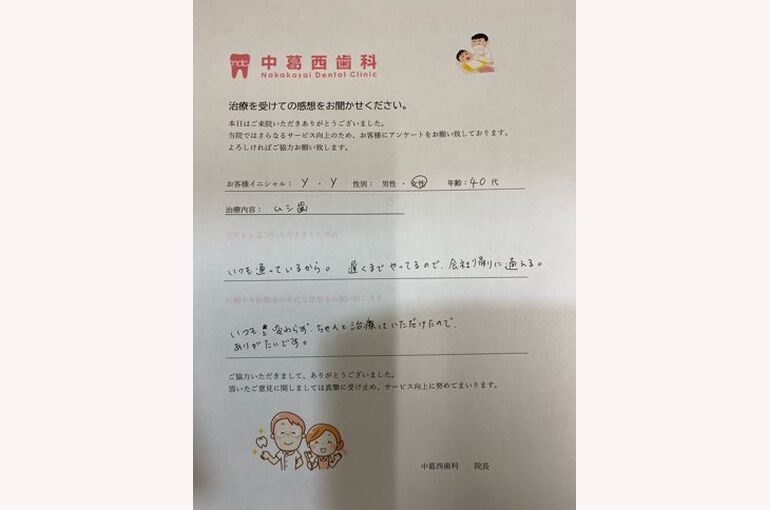 mdc
中葛西歯科
Nakakasai Dental Clinic
治療を受けての感想をお聞かせください。
本日はご来院いただきありがとうございました。
当院ではさらなるサービス向上のため、お客様にアンケートをお願い致しております。
よろしければご協力お願い致します。
お客様イニシャル： Y ・ Y 性別： 男性 ・ 女性 年齢：40 代
治療内容： ムシ歯
当院をお選びいただきました理由
いつも通っているから。 遅くまでやってるので、会社帰りに通える。
治療中や治療後の率直な感想をお願い致します
いつもと変わらず、ちゃんと治療していただけたので、
ありがたいです。
ご協力いただきまして、ありがとうございました。
頂いたご意見に関しましては真摯に受け止め、サービス向上に努めてまいります。
中葛西歯科 院長